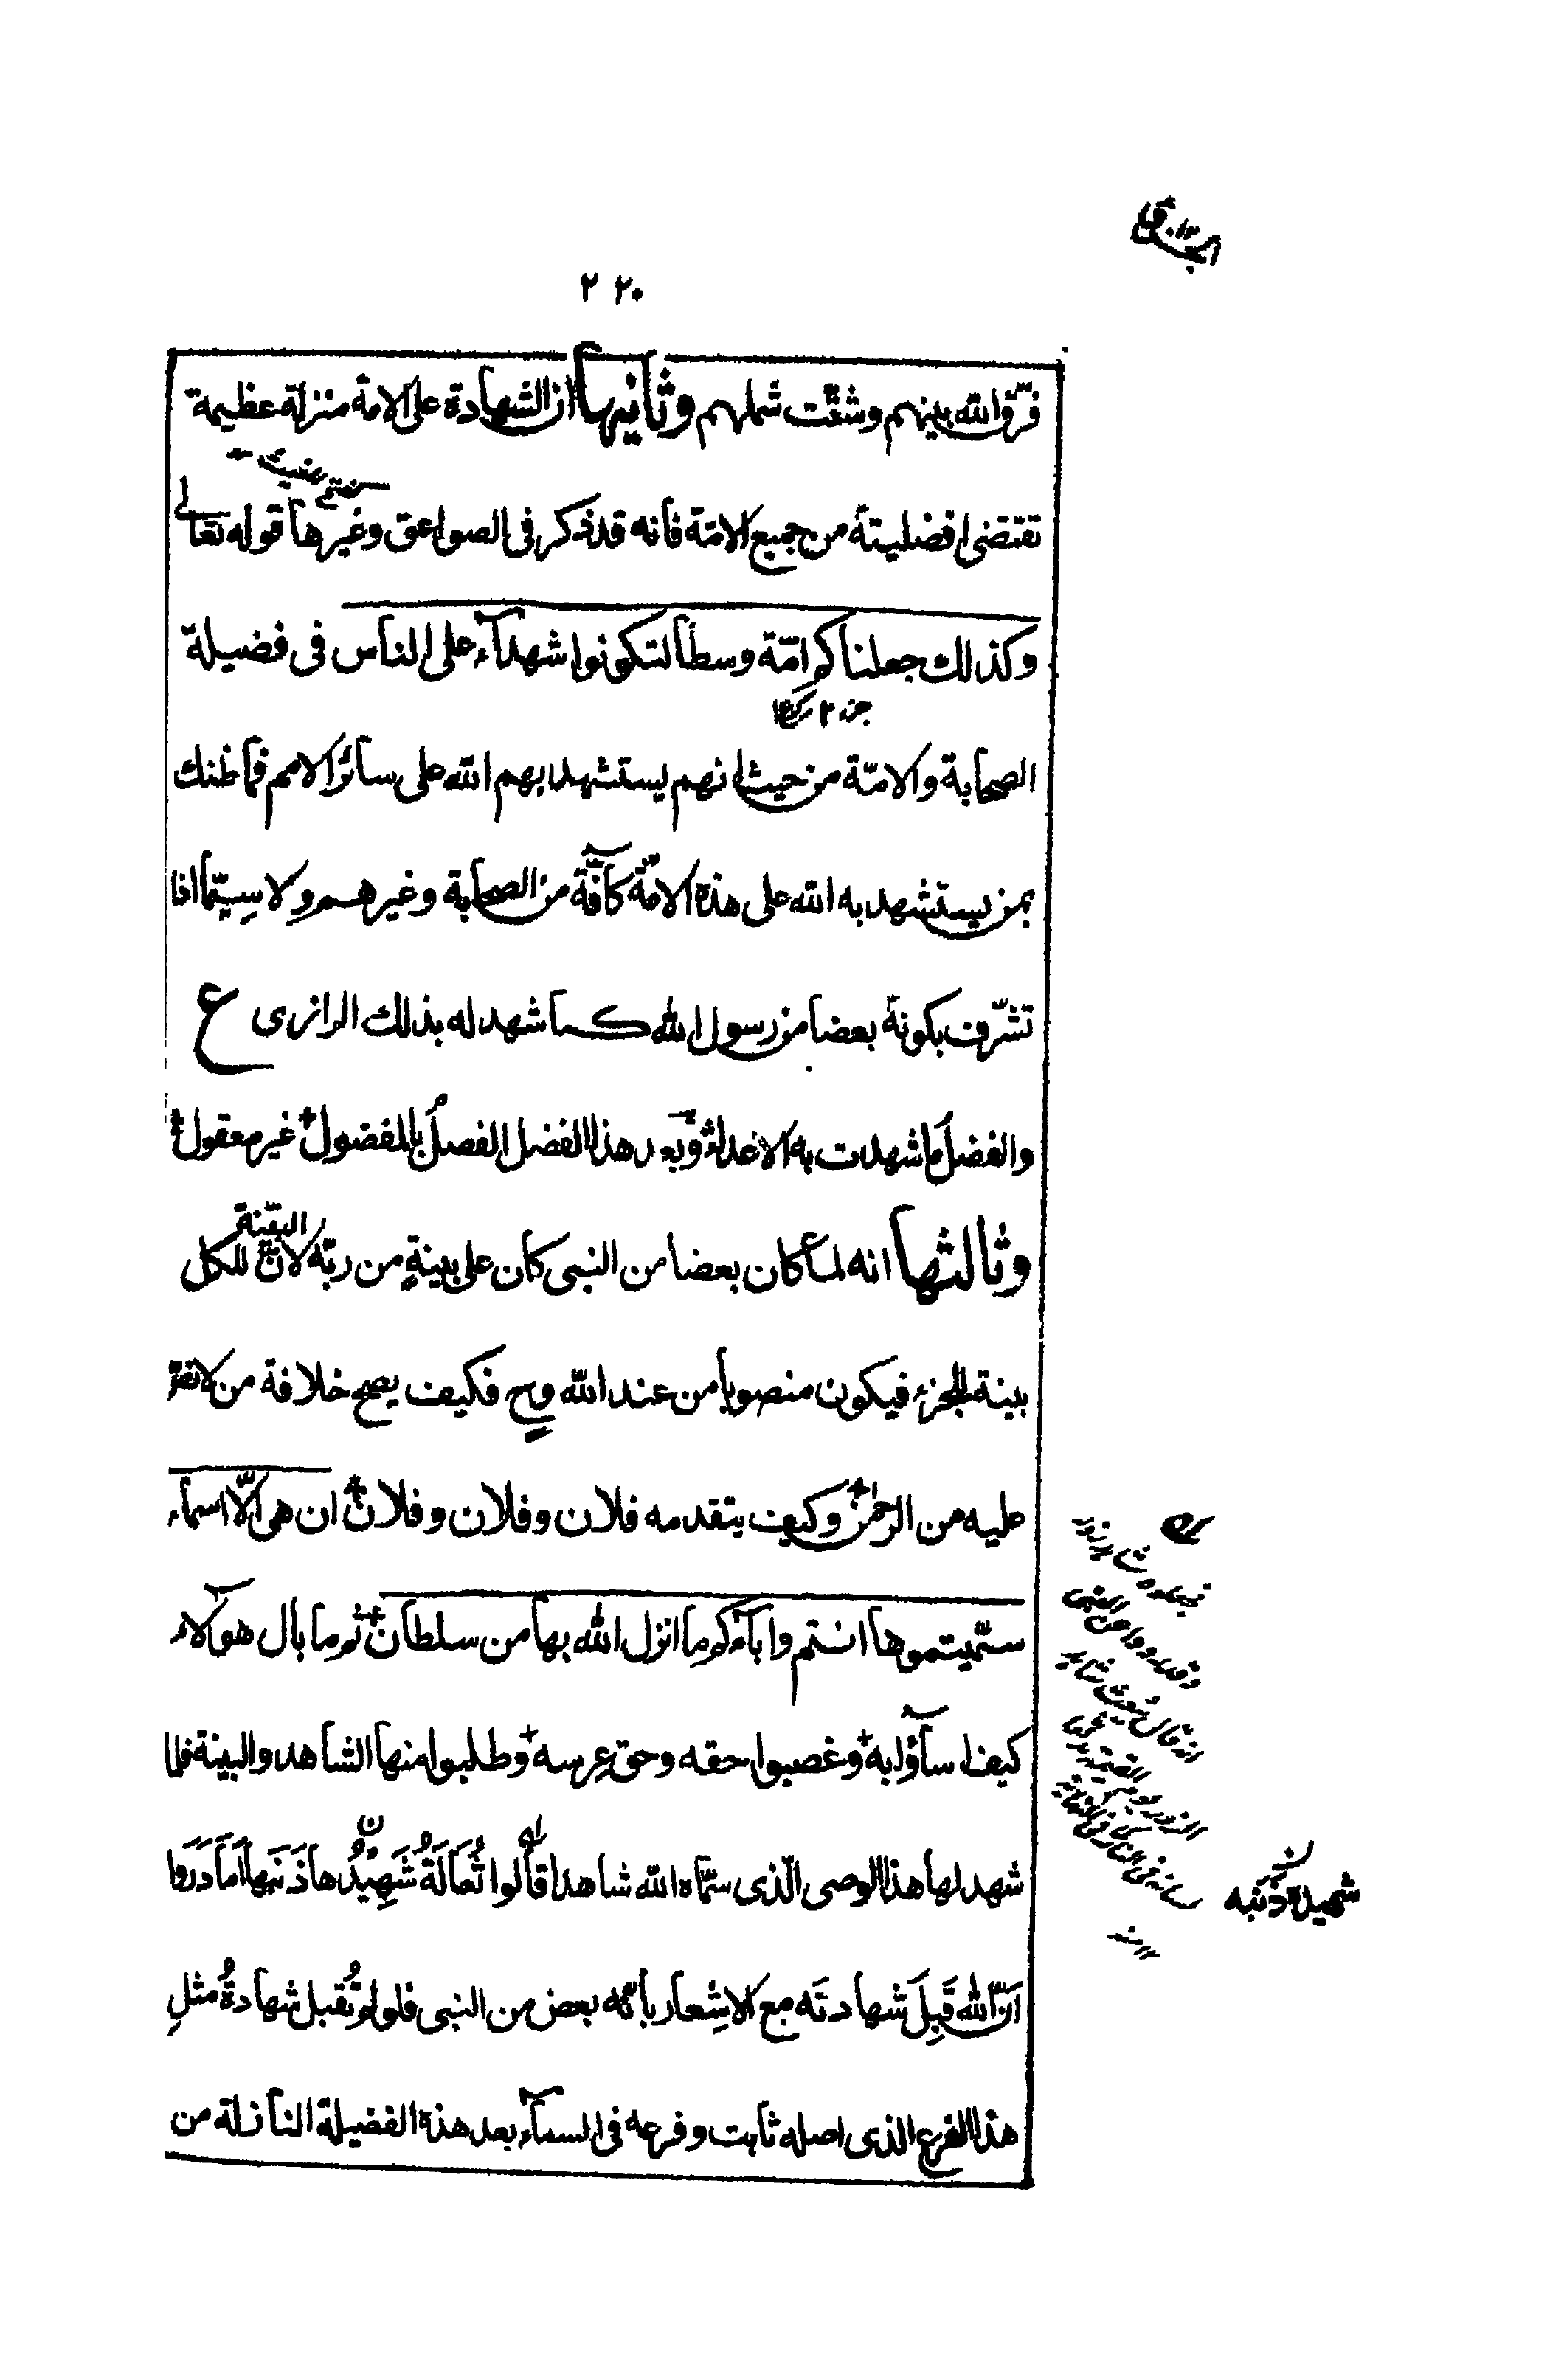 ٢٢٠
فرّق الله بينهم وشتّت شملهم وثانيها ان الشهادة على الامة منزلة عظيمة
تقتضى افضليته من جميع الامّة فانه قد ذكر فى الصواعق وغيرها قوله تعالى
وكذلك جعلناكم امّة وسطا لتكونوا شهدآء على الناس فى فضيلة
الصحابة والامّة من حيث انهم يستشهد بهم الله على سائر الامم فما ظنك
بمن يستشهد به الله على هذه الامّة كآفّة من الصحابة وغيرهم ولا سيّما اذا
تشرّف بكونه بعضا من رسول الله كما شهد له بذلك الرازى ع
والفضل ما شهدت به الاعداء وبعد هذا الفضل الفصل بالمفضول غير معقول
وثالثها انه لما كان بعضا من النبى كان على بينةٍ من ربّه لانّ البيّنة للكل
بينة للجزء فيكون منصوبا من عند الله وح فكيف يصح خلافة من لا نصّ
عليه من الرحمن وكيف يتقدمه فلان وفلان وفلان ان هى الّا اسماء
سمّيتموها انتم وآباؤكم ما انزل الله بها من سلطان ثم ما بال هولاء
كيف اسآؤا به وغصبوا حقه وحق عِرسه وطلبوا منها الشاهد والبينة فلما
شهد لها هذا الوصى الّذى سمّاه الله شاهدا قالوا ثُعَالَةُ شَهِيْدُها ذَنَبها اَمَا دَرَوا
اَنّ الله قَبِلَ شهادتَه مع الاشِعار بانّه بعض من النبى فلو لم تُقبل شهادةُ مثلِ
هذا الفرع الذى اصله ثابت وفرعه فى السمآء بعد هذه الفضيلة النازلة من
شهيده ذنبه